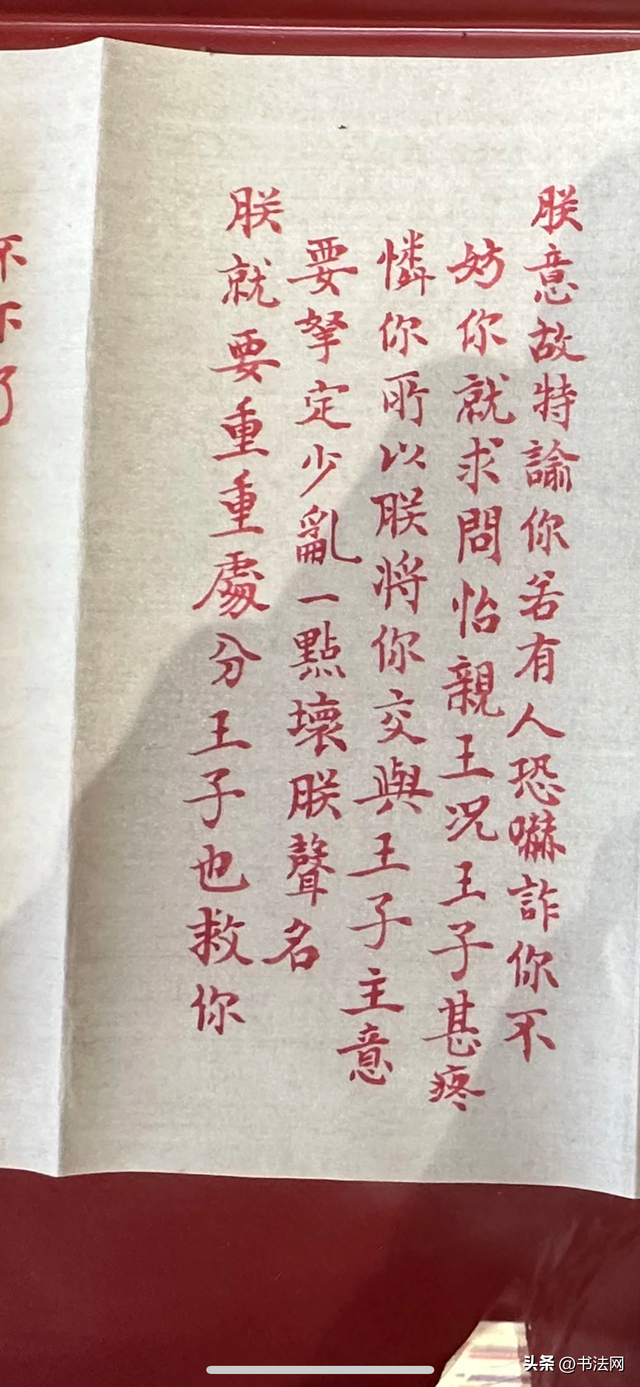 朕意故特諭你若有人恐嚇詐你不
妨你就求問怡親王況王子甚疼
憐你所以朕將你交與王子主意
要拏定少亂一點壞朕聲名
朕就要重重處分王子也救你
不下了
头条 @书法网